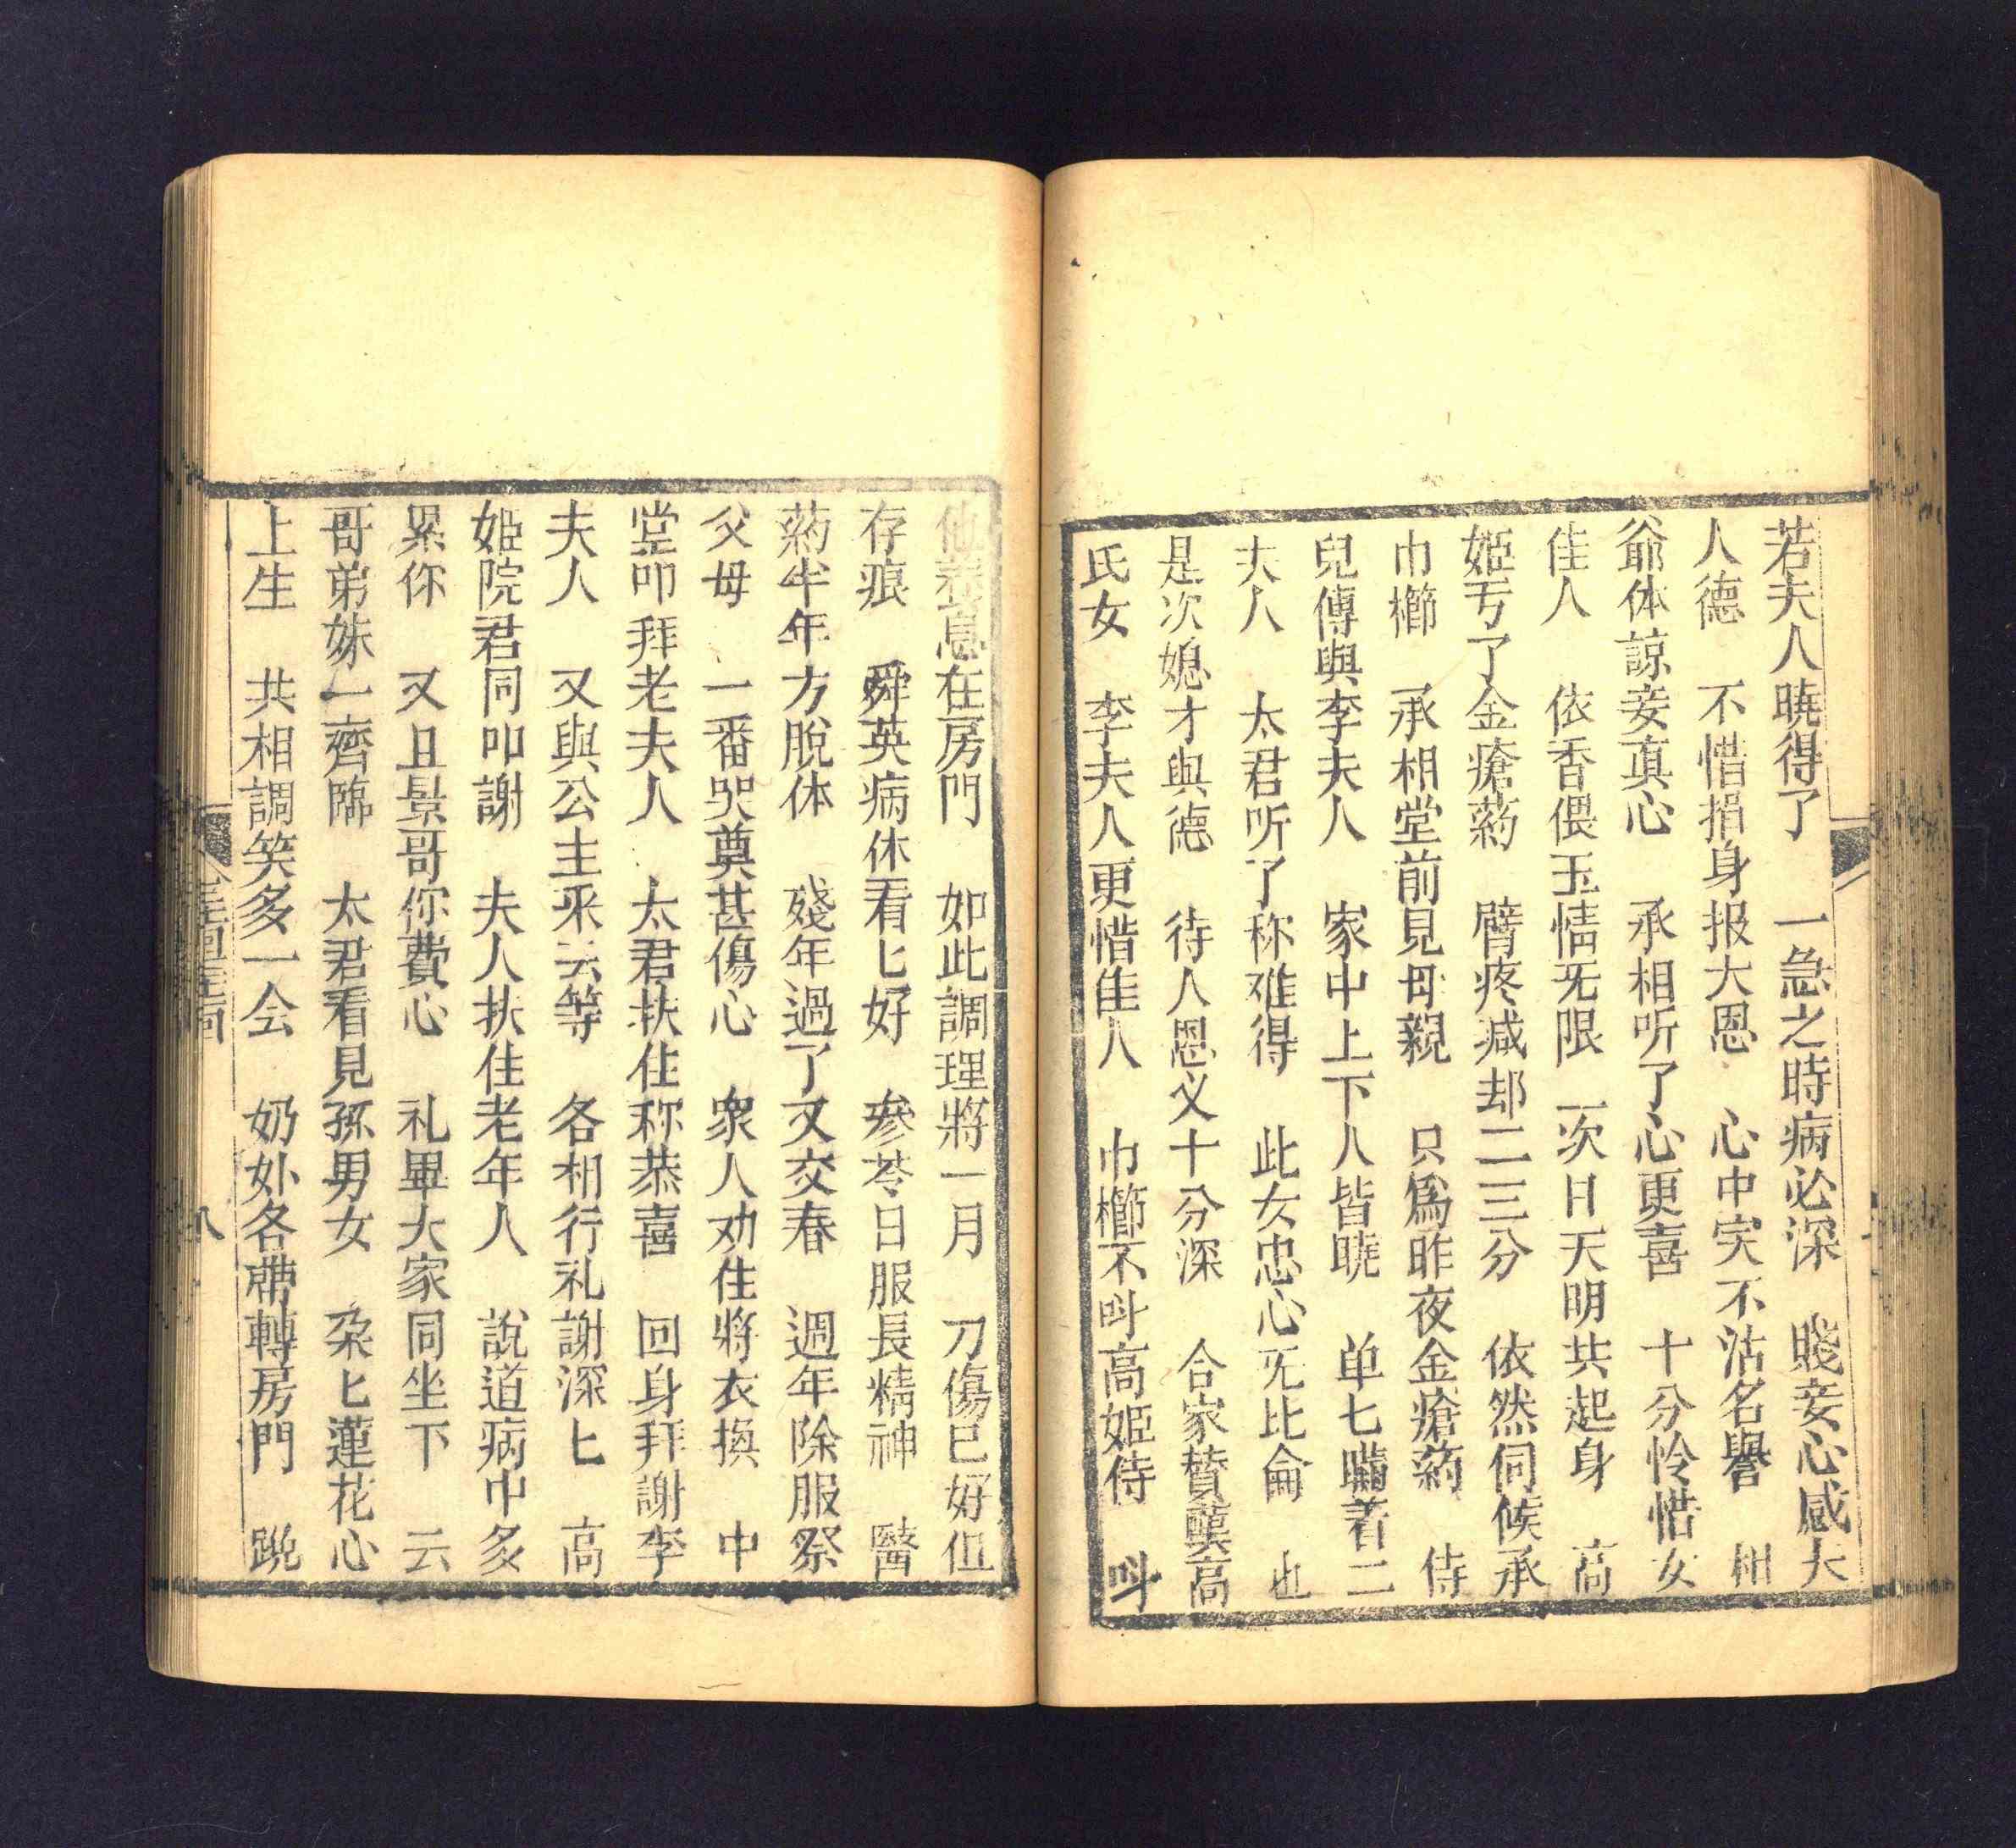 若夫人曉得了　一急之時病必深　賤妾心感夫
人德　不惜捐身报大恩　心中实不沽名譽　相
爺体諒妾真心　承相听了心更喜　十分怜惜女
佳人　依香偎玉情旡限　一次日天明共起身　高
姬亐了金瘡葯　臂疼减却二三分　依然伺候承
巾櫛　承相堂前見母親　只爲昨夜金瘡葯　侍
兒傳與李夫人　家中上下人皆曉　单七嚙着二
夫人　太君听了称难得　此女忠心旡比倫　也
是次媳才與德　待人恩义十分深　合家賛羙高
氏女　李夫人更惜佳人　巾櫛不呌高姬侍　呌
他養息在房門　如此調理將一月　刀傷已好但
存痕　舜英病体看匕好　參苓日服長精神　醫
葯半年方脫体　殘年過了又交春　週年除服祭
父母　一番哭奠甚傷心　衆人劝住將衣换　中
堂叩拜老夫人　太君扶住称恭喜　回身拜謝李
夫人　又與公主采云等　各相行礼謝深匕　高
姬院君同叩謝　夫人扶住老年人　說道病中多
累你　又且景哥你費心　礼畢大家同坐下　云
哥弟妹一齊臨　太君看見孫男女　朶匕蓮花心
上生　共相調笑多一会　奶妳各帶轉房門　跳
八